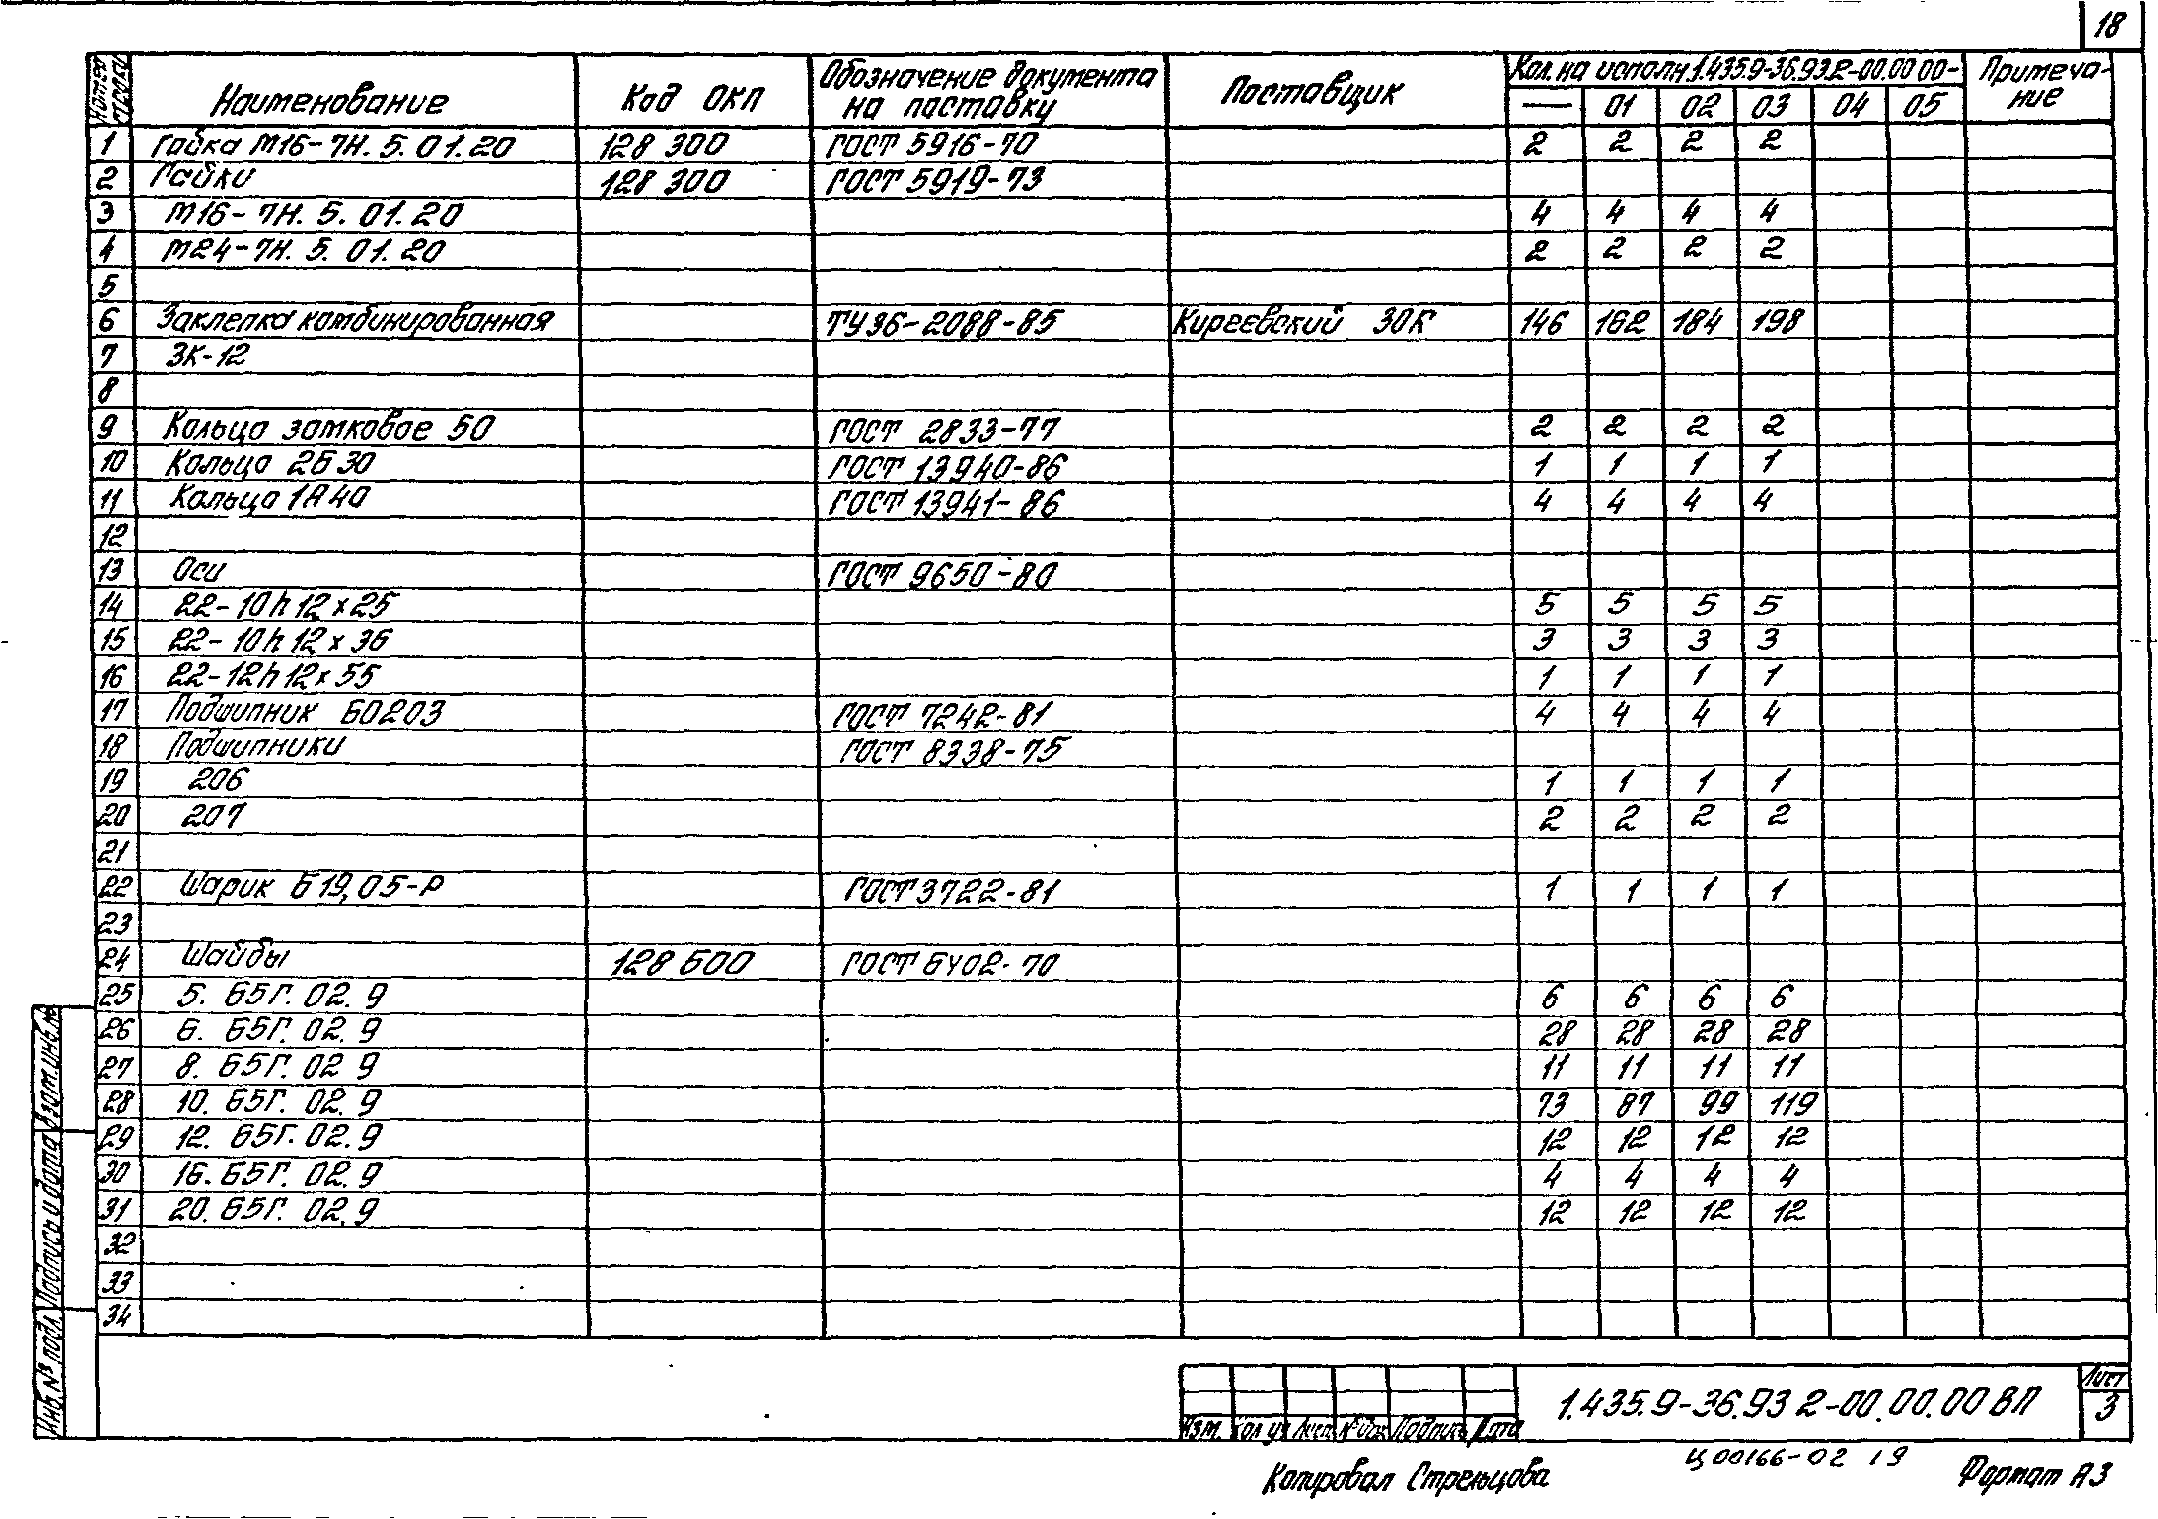 18
Номер строки Наименование Код ОКП Обозначение документа на поставку Поставщик Кол. на исполн. 1.435.9-36.93.2-00.00 00- Примечание
— 01 02 03 04 05
1 Гайка М16-7Н. 5. 01. 20 128 300 ГОСТ 5916-70 2 2 2 2
2 Гайки 128 300 ГОСТ 5919-73
3 М16-7Н. 5. 01. 20 4 4 4 4
4 М24-7Н. 5. 01. 20 2 2 2 2
5
6 Заклепка комбинированная ТУ36-2088-85 Киреевский ЗОК 146 162 184 198
7 ЗК-12
8
9 Кольцо замковое 50 ГОСТ 2833-77 2 2 2 2
10 Кольцо 2Б 30 ГОСТ 13940-86 1 1 1 1
11 Кольцо 1А 40 ГОСТ 13941-86 4 4 4 4
12
13 Оси ГОСТ 9650-80
14 22-10h12x25 5 5 5 5
15 22-10h12x36 3 3 3 3
16 22-12h12x55 1 1 1 1
17 Подшипник 60203 ГОСТ 7242-81 4 4 4 4
18 Подшипники ГОСТ 8338-75
19 206 1 1 1 1
20 207 2 2 2 2
21
22 Шарик Б19,05-Р ГОСТ 3722-81 1 1 1 1
23
24 Шайбы 128 600 ГОСТ 6402-70
25 5. 65Г. 02. 9 6 6 6 6
26 6. 65Г. 02. 9 28 28 28 28
27 8. 65Г. 02 9 11 11 11 11
28 10. 65Г. 02. 9 73 87 99 119
29 12. 65Г. 02. 9 12 12 12 12
30 16. 65Г. 02. 9 4 4 4 4
31 20. 65Г. 02. 9 12 12 12 12
32
33
34
Инв. № подл. Подпись и дата Взам. инв. №
Изм. Кол уч Лист № док Подпись Дата
1.435.9-36.93 2-00.00.00 ВП
Лист
3
Ц00166-02 19
Копировал Стрельцова Формат А3